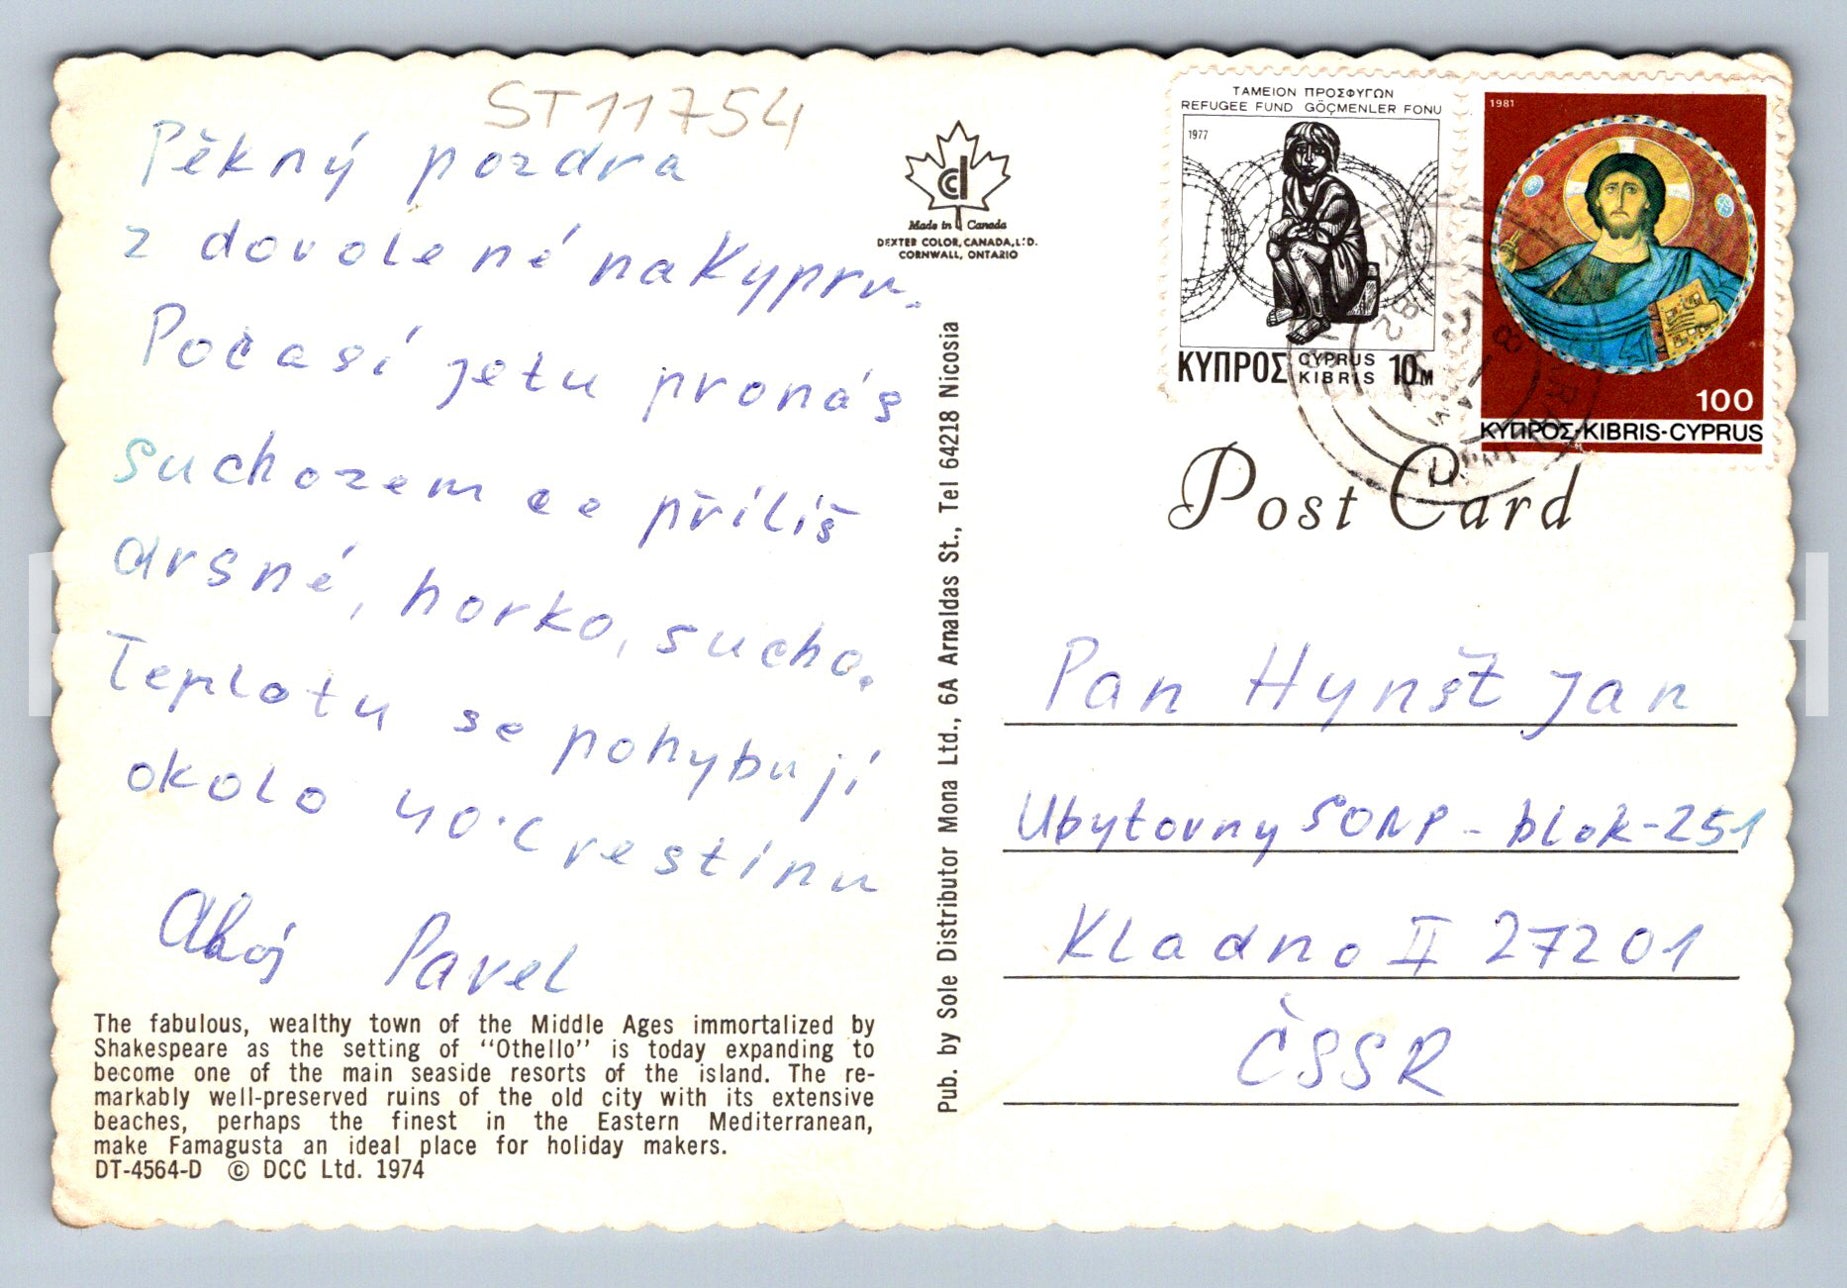 ST11754
Pěkný pozdra
z dovolené na Kypru.
Počasí je tu pro nás
suchozemce příliš
drsné, horko, sucho.
Teplotu se pohybují
okolo 40°C ve stínu
Ahoj Pavel
The fabulous, wealthy town of the Middle Ages immortalized by
Shakespeare as the setting of "Othello" is today expanding to
become one of the main seaside resorts of the island. The re-
markably well-preserved ruins of the old city with its extensive
beaches, perhaps the finest in the Eastern Mediterranean,
make Famagusta an ideal place for holiday makers.
DT-4564-D © DCC Ltd. 1974
Made in Canada
DEXTER COLOR, CANADA, LTD.
CORNWALL, ONTARIO
Pub. by Sole Distributor Mona Ltd., 6A Arnaldas St., Tel 64218 Nicosia
ΤΑΜΕΙΟΝ ΠΡΟΣΦΥΓΩΝ
REFUGEE FUND GÖÇMENLER FONU
1977
ΚΥΠΡΟΣ CYPRUS KIBRIS 10M
1981
100
ΚΥΠΡΟΣ-KIBRIS-CYPRUS
Post Card
Pan Hynšt Jan
Ubytovny SONP - blok-251
Kladno II 27201
ČSSR